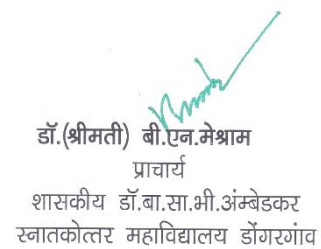 डॉ.(श्रीमती) बी.एन.मेश्राम
प्राचार्य
शासकीय डॉ.बा.सा.भी.अंम्बेडकर
स्नातकोत्तर महाविद्यालय डोंगरगांव